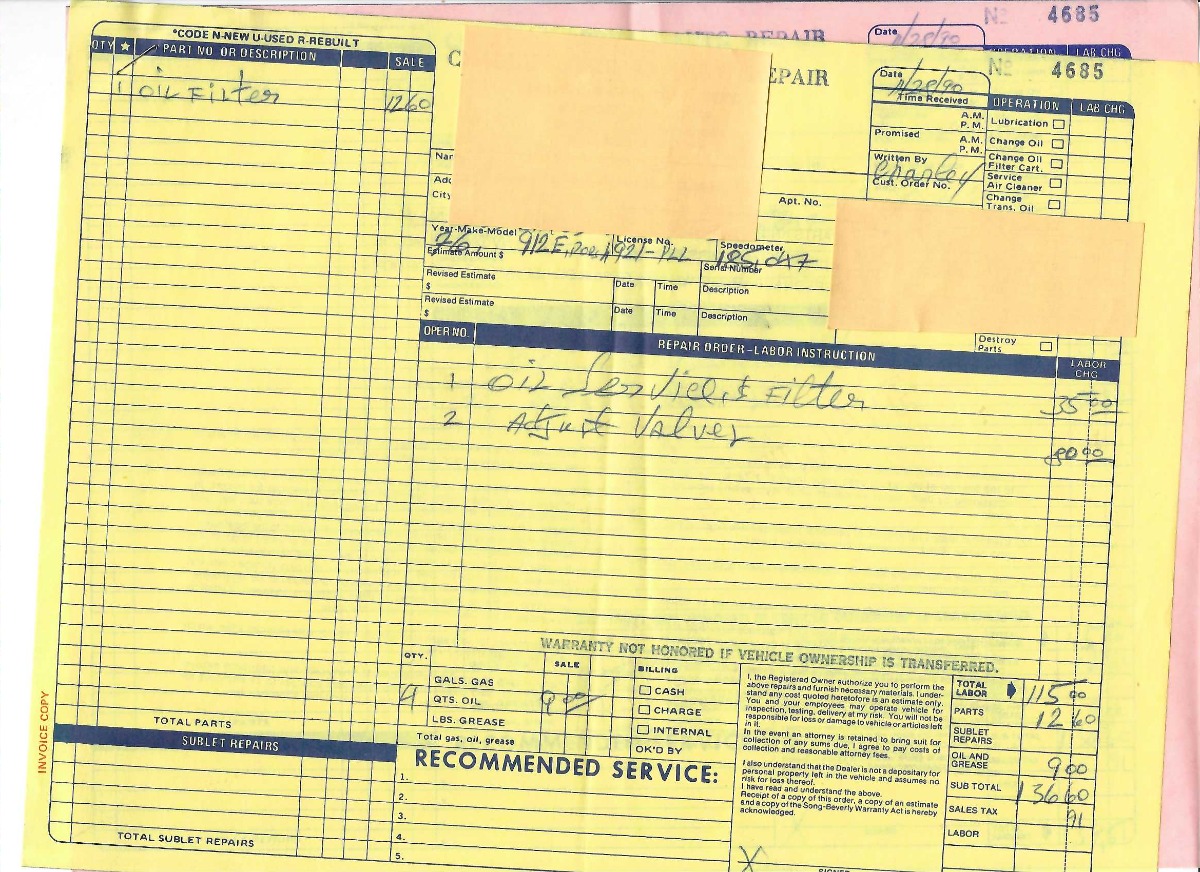 Nº 4685
Date
REPAIR
OPERATION LAB CHG
*CODE N-NEW U-USED R-REBUILT
QTY ★ PART NO. OR DESCRIPTION SALE
1 OIL FILTER 12 60
C
EPAIR
Date
Nº 4685
/28/90
Time Received
OPERATION LAB CHG
A.M.
P.M.
Lubrication
Promised
A.M.
P.M.
Change Oil
Written By
Charley
Change Oil
Filter Cart.
Cust. Order No.
Service
Air Cleaner
Change
Trans. Oil
Nar
Adc
City
Apt. No.
Year-Make-Model License No. Speedometer
76 912E, 921-PLL
Estimate Amount $ Serial Number
Revised Estimate
$
Date Time Description
Revised Estimate
$
Date Time Description
Destroy
Parts
OPER NO. REPAIR ORDER-LABOR INSTRUCTION LABOR
CHG
1 OIL Service & Filter 35 00
2 Adjust Valves
80 00
WARRANTY NOT HONORED IF VEHICLE OWNERSHIP IS TRANSFERRED.
QTY. SALE
GALS. GAS
4 QTS. OIL 9 00
LBS. GREASE
Total gas, oil, grease
BILLING
CASH
CHARGE
INTERNAL
OK'D BY
I, the Registered Owner authorize you to perform the
above repairs and furnish necessary materials. I under-
stand any cost quoted heretofore is an estimate only.
You and your employees may operate vehicle for
inspection, testing, delivery at my risk. You will not be
responsible for loss or damage to vehicle or articles left
in it.
In the event an attorney is retained to bring suit for
collection of any sums due, I agree to pay costs of
collection and reasonable attorney fees.
I also understand that the Dealer is not a depositary for
personal property left in the vehicle and assumes no
risk for loss thereof.
I have read and understand the above.
Receipt of a copy of this order, a copy of an estimate
and a copy of the Song-Beverly Warranty Act is hereby
acknowledged.
X
SIGNED
TOTAL
LABOR 115 00
PARTS 12 60
SUBLET
REPAIRS
OIL AND
GREASE 9 00
SUB TOTAL 136 60
SALES TAX 91
LABOR
INVOICE COPY
TOTAL PARTS
SUBLET REPAIRS
TOTAL SUBLET REPAIRS
RECOMMENDED SERVICE:
1.
2.
3.
4.
5.